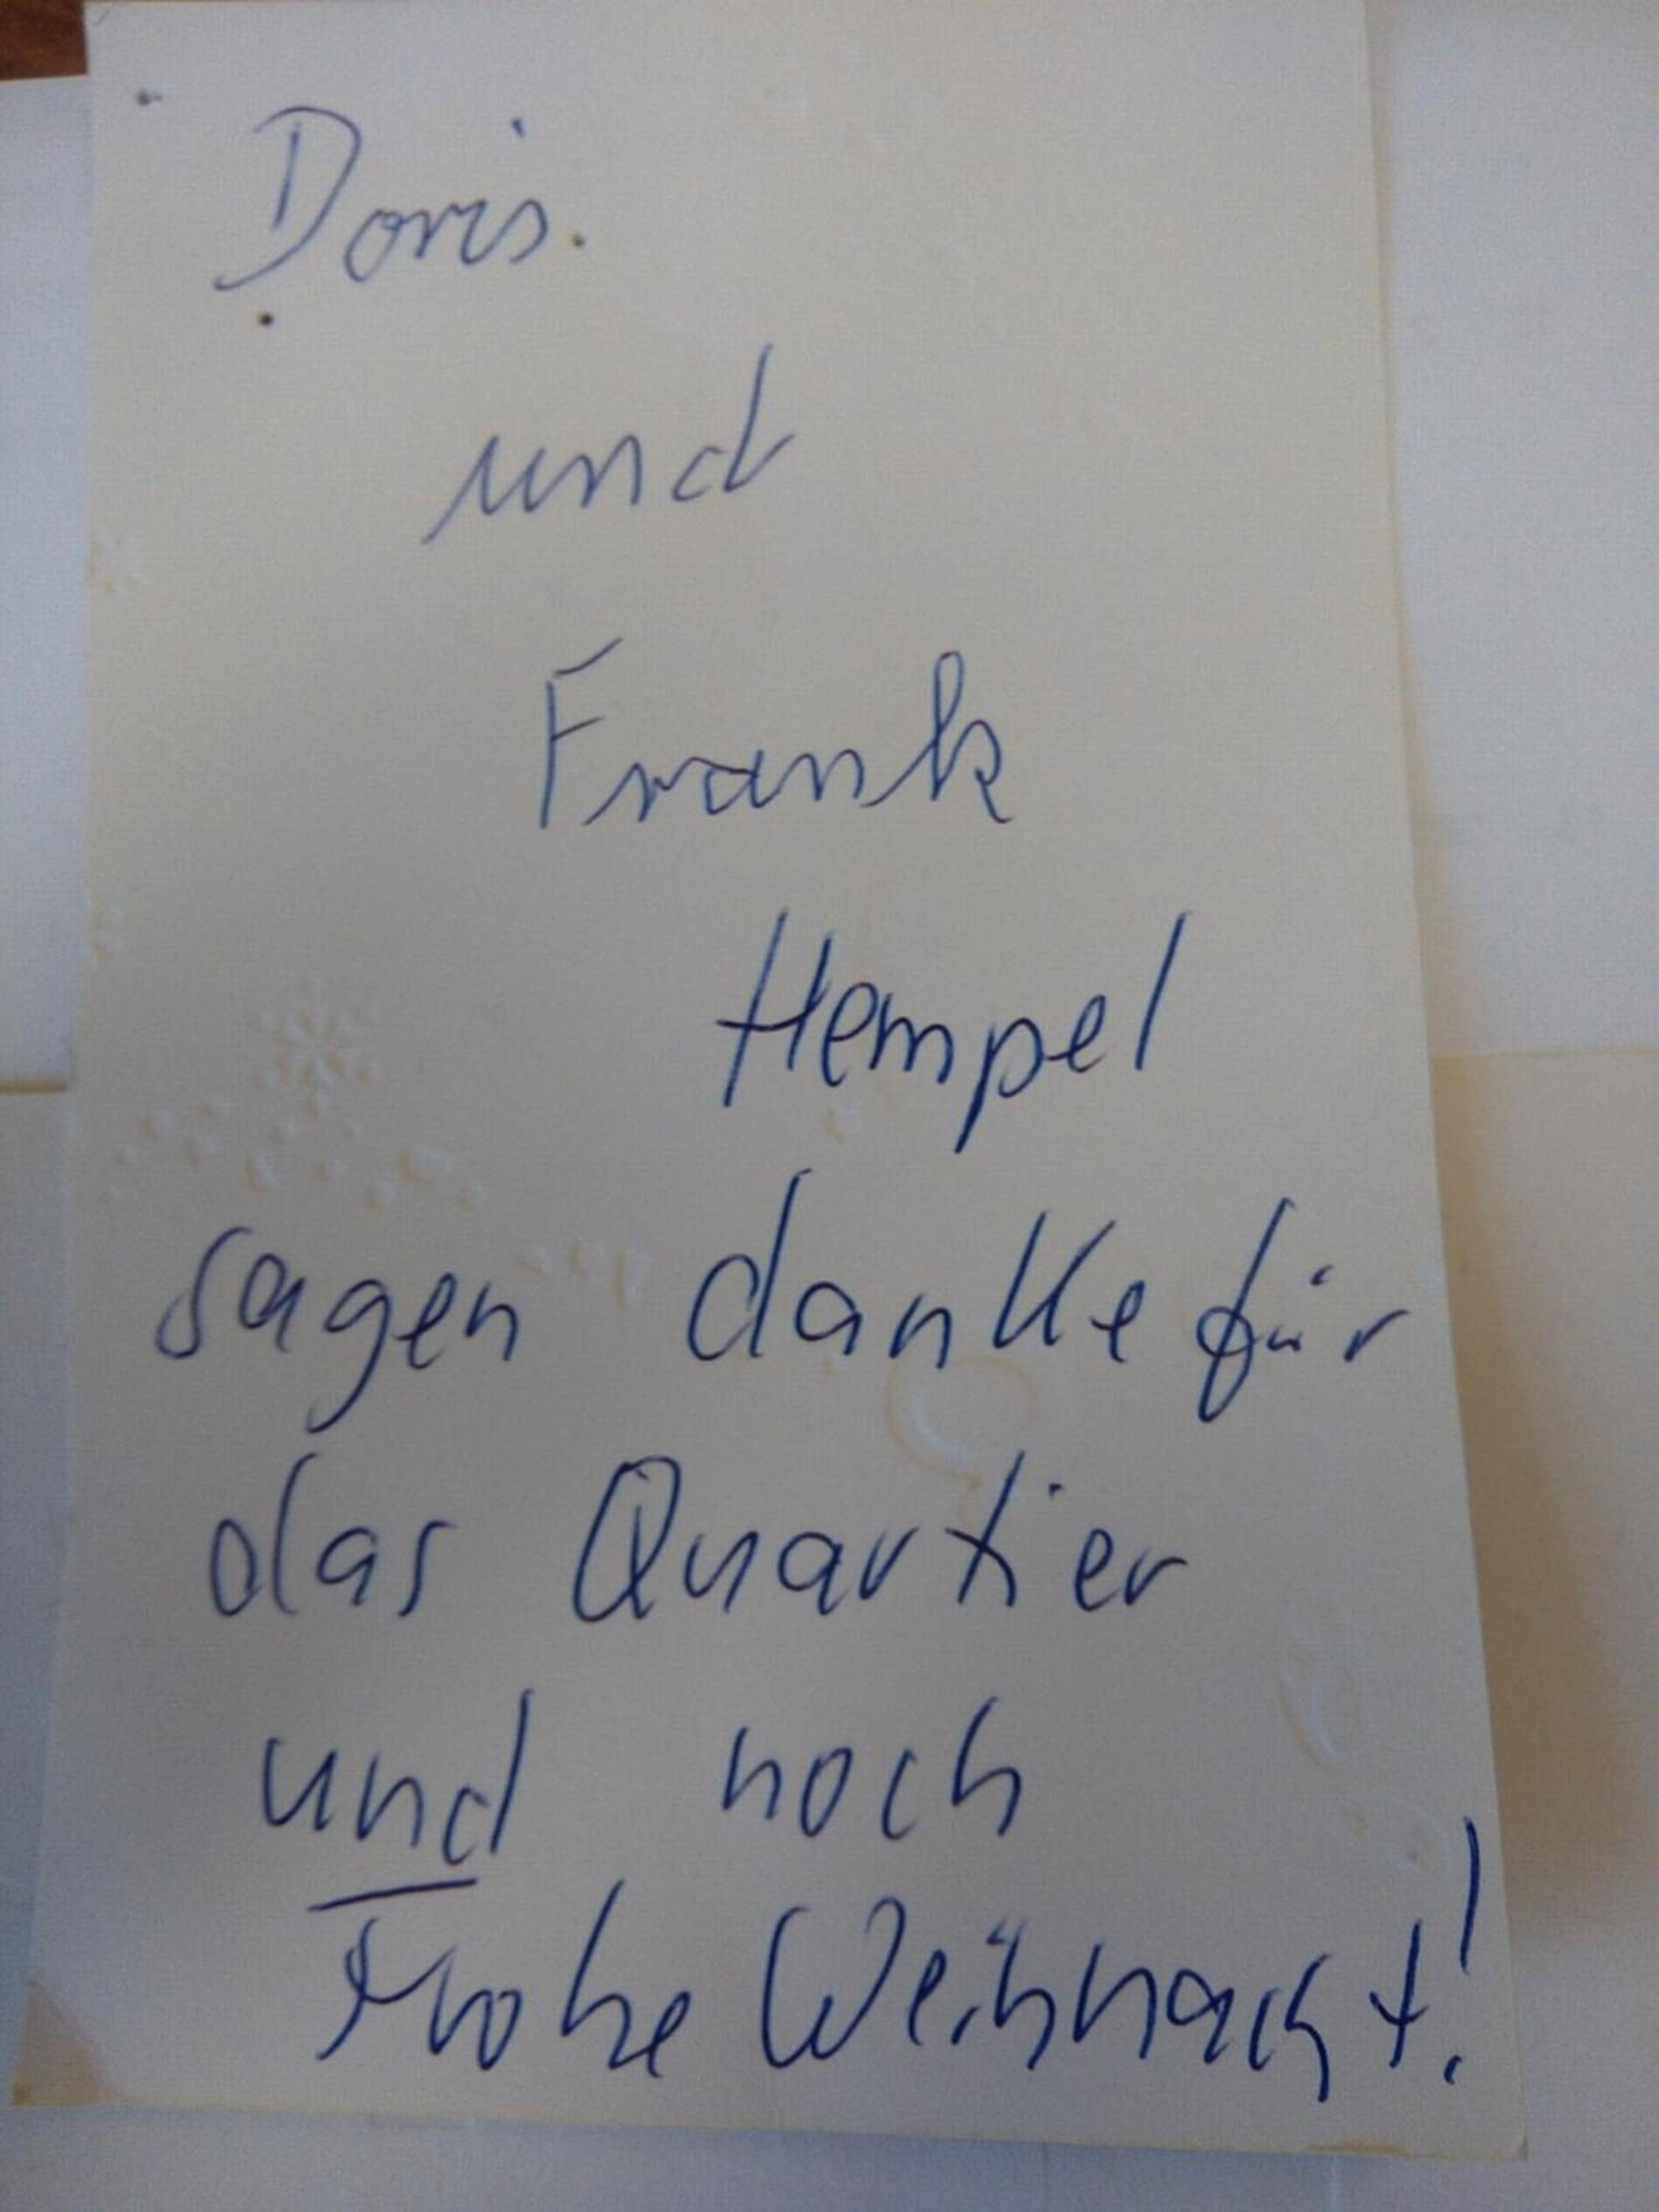 Doris
und
Frank
Hempel
sagen danke für
das Quartier
und noch
Frohe Weihnacht!